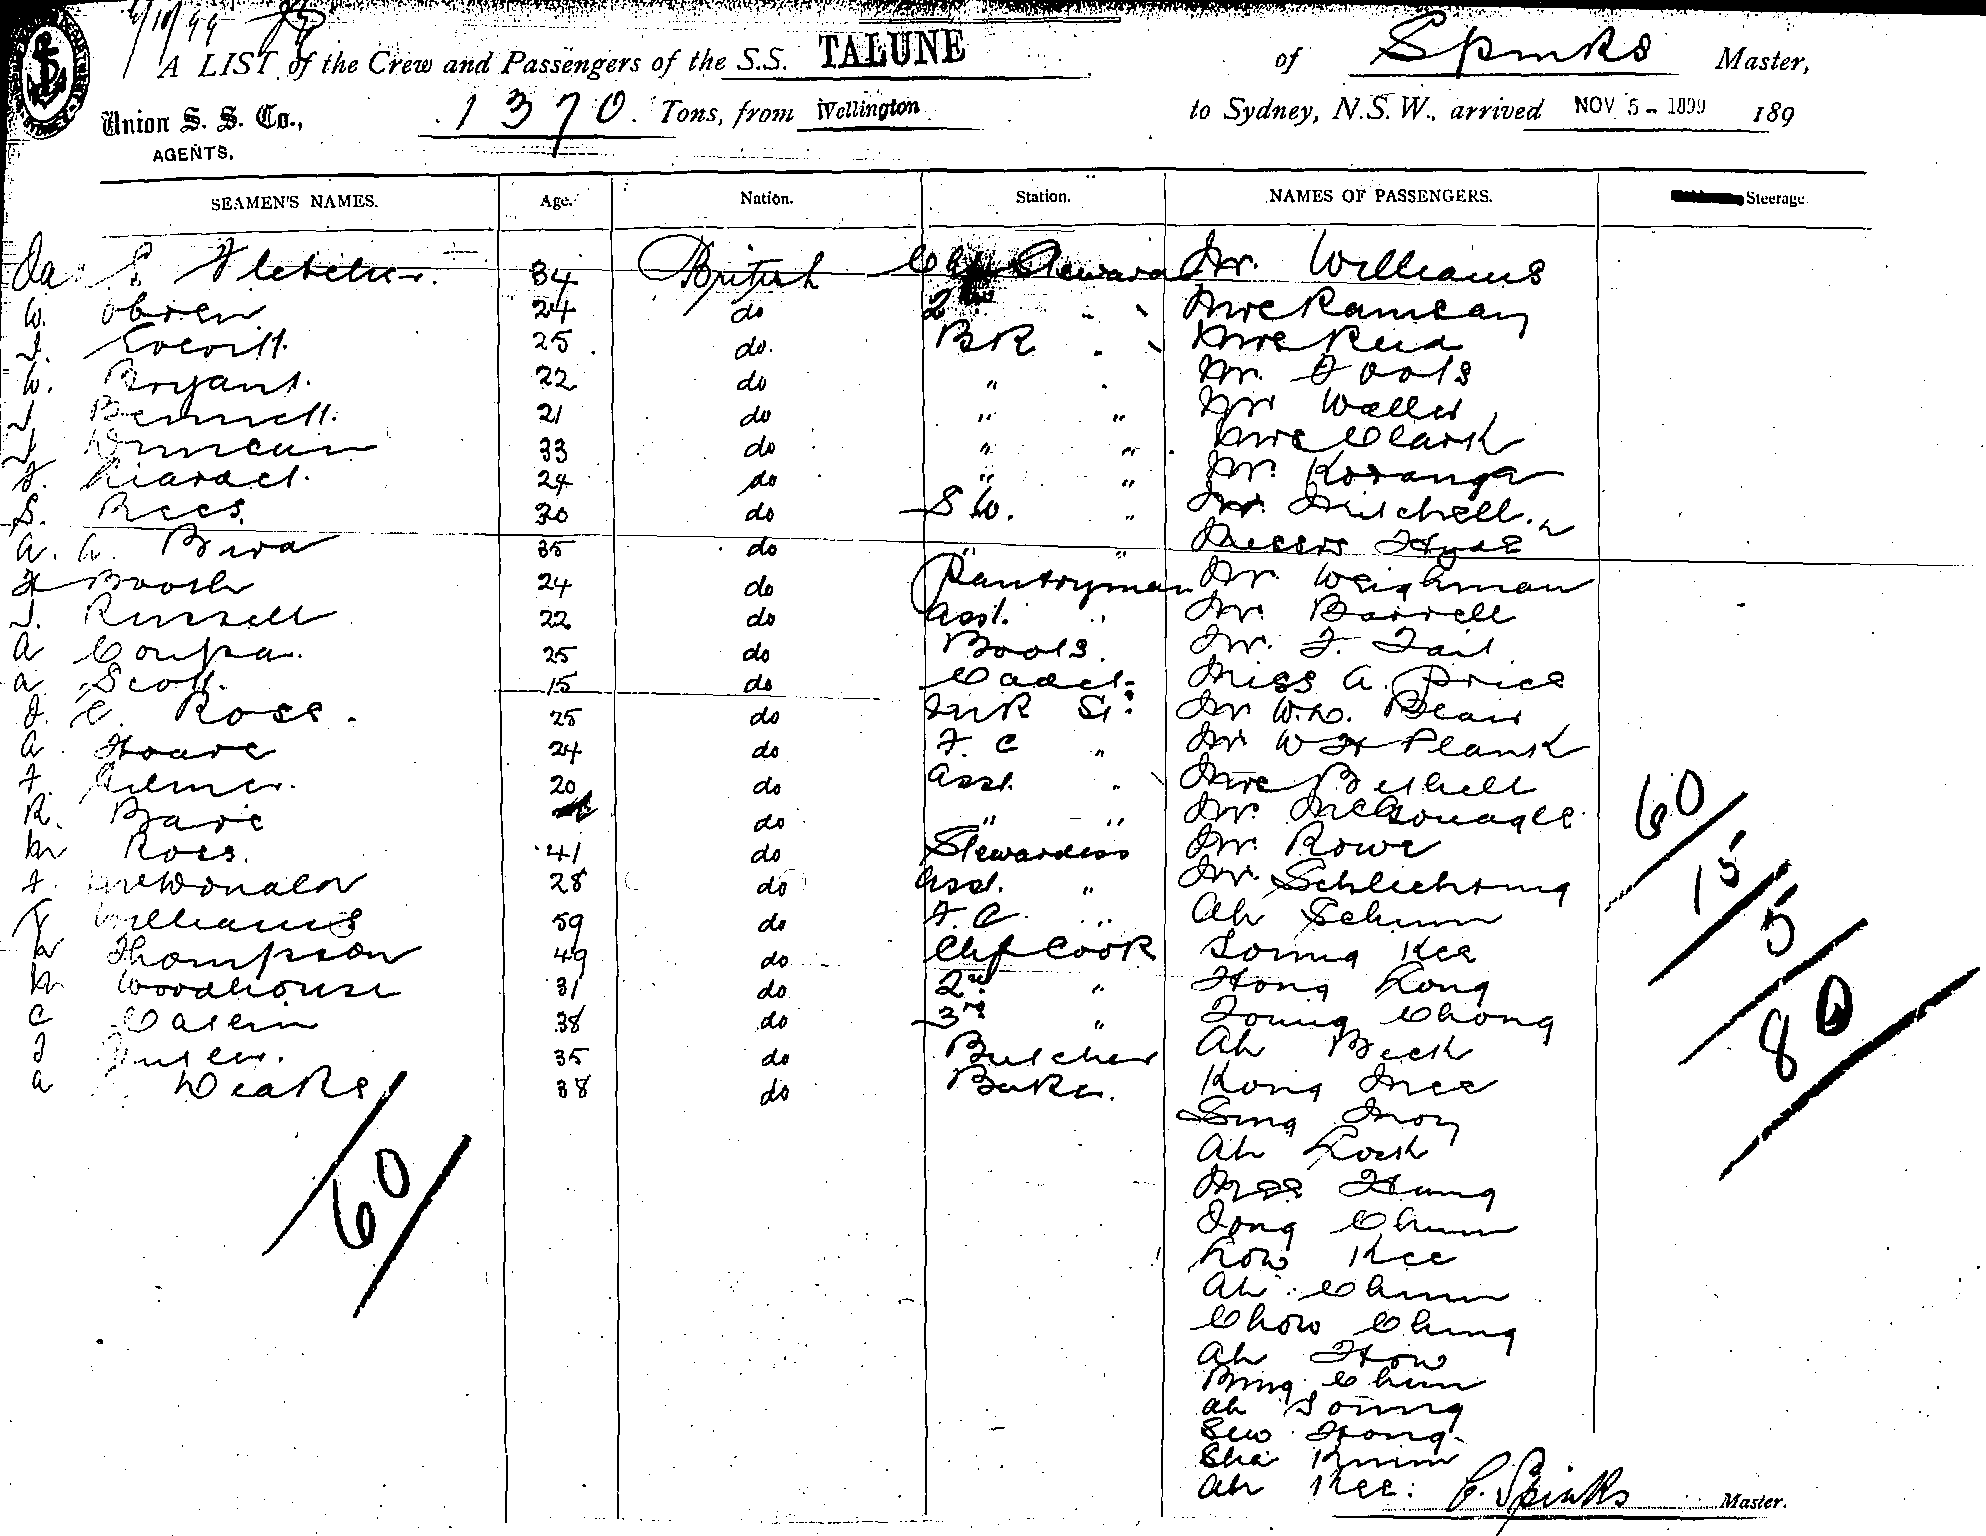 6/10/99
A LIST of the Crew and Passengers of the S.S. TALUNE of Spinks Master,
Union S. S. Co., 1370 Tons, from Wellington to Sydney, N.S.W., arrived NOV 5 - 1899 189
AGENTS.
SEAMEN'S NAMES. Age. Nation. Station. NAMES OF PASSENGERS. Steerage
Fletcher. 34 British Steward Mr. Williams
W. Obren 24 do 2nd " " Mrs Ramsay
25 do. BR " " Mrs Reid
W. Bryant. 22 do " " Mr. Foots
J Bennett. 21 do " " Mr Waller
J Duncan 33 do " " Mrs Clark
F. Liardet. 24 do " " Mr. Koranga
S. Rees. 30 do S W. " Mr. Mitchell.
A. A. Bird 35 do " " Messrs Hyde
H Booth 24 do Pantryman Mr. Weighman
J. Russell 22 do Asst. " Mr. Barrell
A 25 do Boots. Mr. F. Tait
A Scott. 15 do Cadet. Miss A. Price
J. C. Rose. 25 do St: Mr W.
A. Hoare 24 do F. C " Mr W H Plank
F. 20 do Asst. " Mrs Bethell
R. do " " Mr.
M Ross. 41 do Stewardess Mr. Rowe
F. McDonald 28 do Asst. " Mr. Schlichting
Williams 59 do F. C. " Ah Schum
W Thompson 49 do Chf Cook Kee
M Woodhouse 31 do 2nd " Hong Long
C 38 do 3rd " Young Chong
J 35 do Butcher Ah Beck
A Deaks 38 do Baker. Kong Mee
Sing Moy
Ah Lock
Mee Hung
Tong Chum
Low Kee
Ah Chum
Chow Chung
Ah How
Bing Chun
Ah Young
Sew Hong
Kee.
60
60
15
5
80
C. Spinks Master.